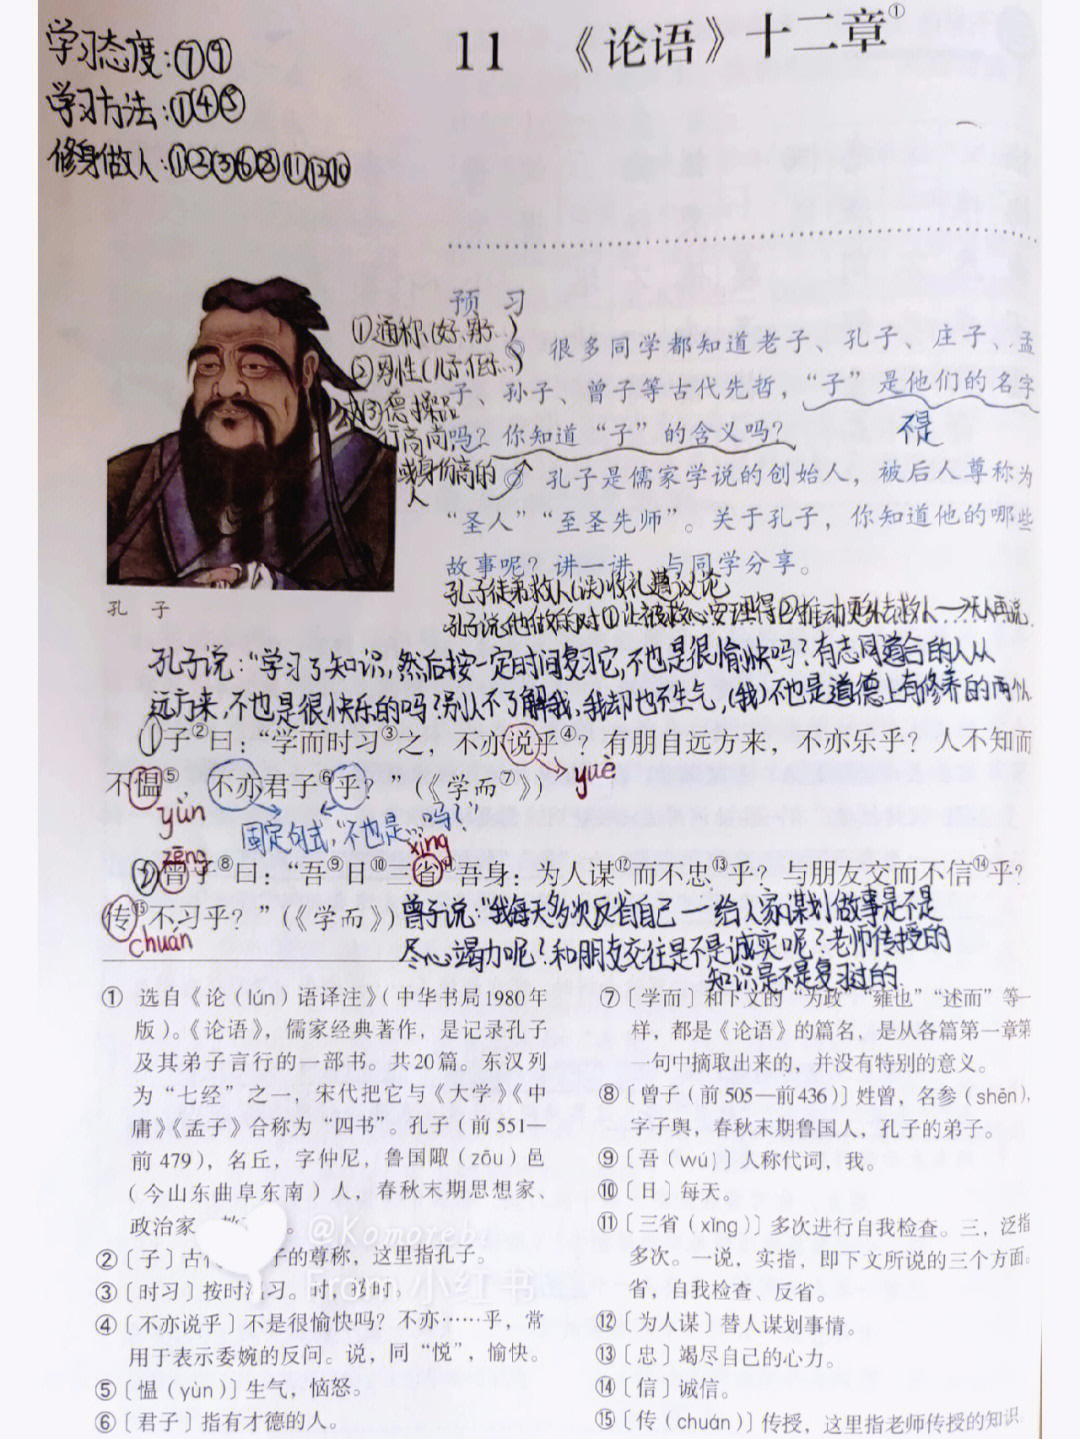 学习态度:⑦⑨
学习方法:①④⑤
修身做人:①②③⑥⑧⑪⑫⑩
11 《论语》十二章①
预 习
①通称(女子、男子…)
②男性(儿子、侄子…)
③德操品
行高尚
或身份高的
人
很多同学都知道老子、孔子、庄子、孟
子、孙子、曾子等古代先哲,“子”是他们的名字
吗?你知道“子”的含义吗?
不是
孔子是儒家学说的创始人,被后人尊称为
“圣人”“至圣先师”。关于孔子,你知道他的哪些
故事呢?讲一讲,与同学分享。
孔 子
孔子徒弟救人(法)收礼遭议论
孔子说他做的对①让被救心安理得②推动更多去救人
孔子说:“学习了知识,然后按一定时间复习它,不也是很愉快吗?有志同道合的人从
远方来,不也是很快乐的吗?别人不了解我,我却也不生气,(我)不也是道德上有修养的
①子②曰:“学而时习③之,不亦说乎④?有朋自远方来,不亦乐乎?人不知而
yuè
不愠⑤,不亦君子⑥乎?”(《学而⑦》)
yùn
固定句式,“不也是…吗?”
zēng
xǐng
②曾子⑧曰:“吾⑨日⑩三省⑪吾身:为人谋⑫而不忠⑬乎?与朋友交而不信⑭乎?
传⑮不习乎?”(《学而》)
chuán
曾子说:“我每天多次反省自己——给人家谋划做事是不是
尽心竭力呢?和朋友交往是不是诚实呢?老师传授的
知识是不是复习过的
① 选自《论(lún)语译注》(中华书局1980年
版)。《论语》,儒家经典著作,是记录孔子
及其弟子言行的一部书。共20篇。东汉列
为“七经”之一,宋代把它与《大学》《中
庸》《孟子》合称为“四书”。孔子(前551—
前479),名丘,字仲尼,鲁国陬(zōu)邑
(今山东曲阜东南)人,春秋末期思想家、
政治家
②〔子〕古 子的尊称,这里指孔子。
③〔时习〕按时 习。时,按时。
④〔不亦说乎〕不是很愉快吗?不亦……乎,常
用于表示委婉的反问。说,同“悦”,愉快。
⑤〔愠(yùn)〕生气,恼怒。
⑥〔君子〕指有才德的人。
⑦〔学而〕和下文的“为政”“雍也”“述而”等一
样,都是《论语》的篇名,是从各篇第一章第
一句中摘取出来的,并没有特别的意义。
⑧〔曾子(前505—前436)〕姓曾,名参(shēn),
字子舆,春秋末期鲁国人,孔子的弟子。
⑨〔吾(wú)〕人称代词,我。
⑩〔日〕每天。
⑪〔三省(xǐng)〕多次进行自我检查。三,泛指
多次。一说,实指,即下文所说的三个方面。
省,自我检查、反省。
⑫〔为人谋〕替人谋划事情。
⑬〔忠〕竭尽自己的心力。
⑭〔信〕诚信。
⑮〔传(chuán)〕传授,这里指老师传授的知识
@Komorebi
From 小红书